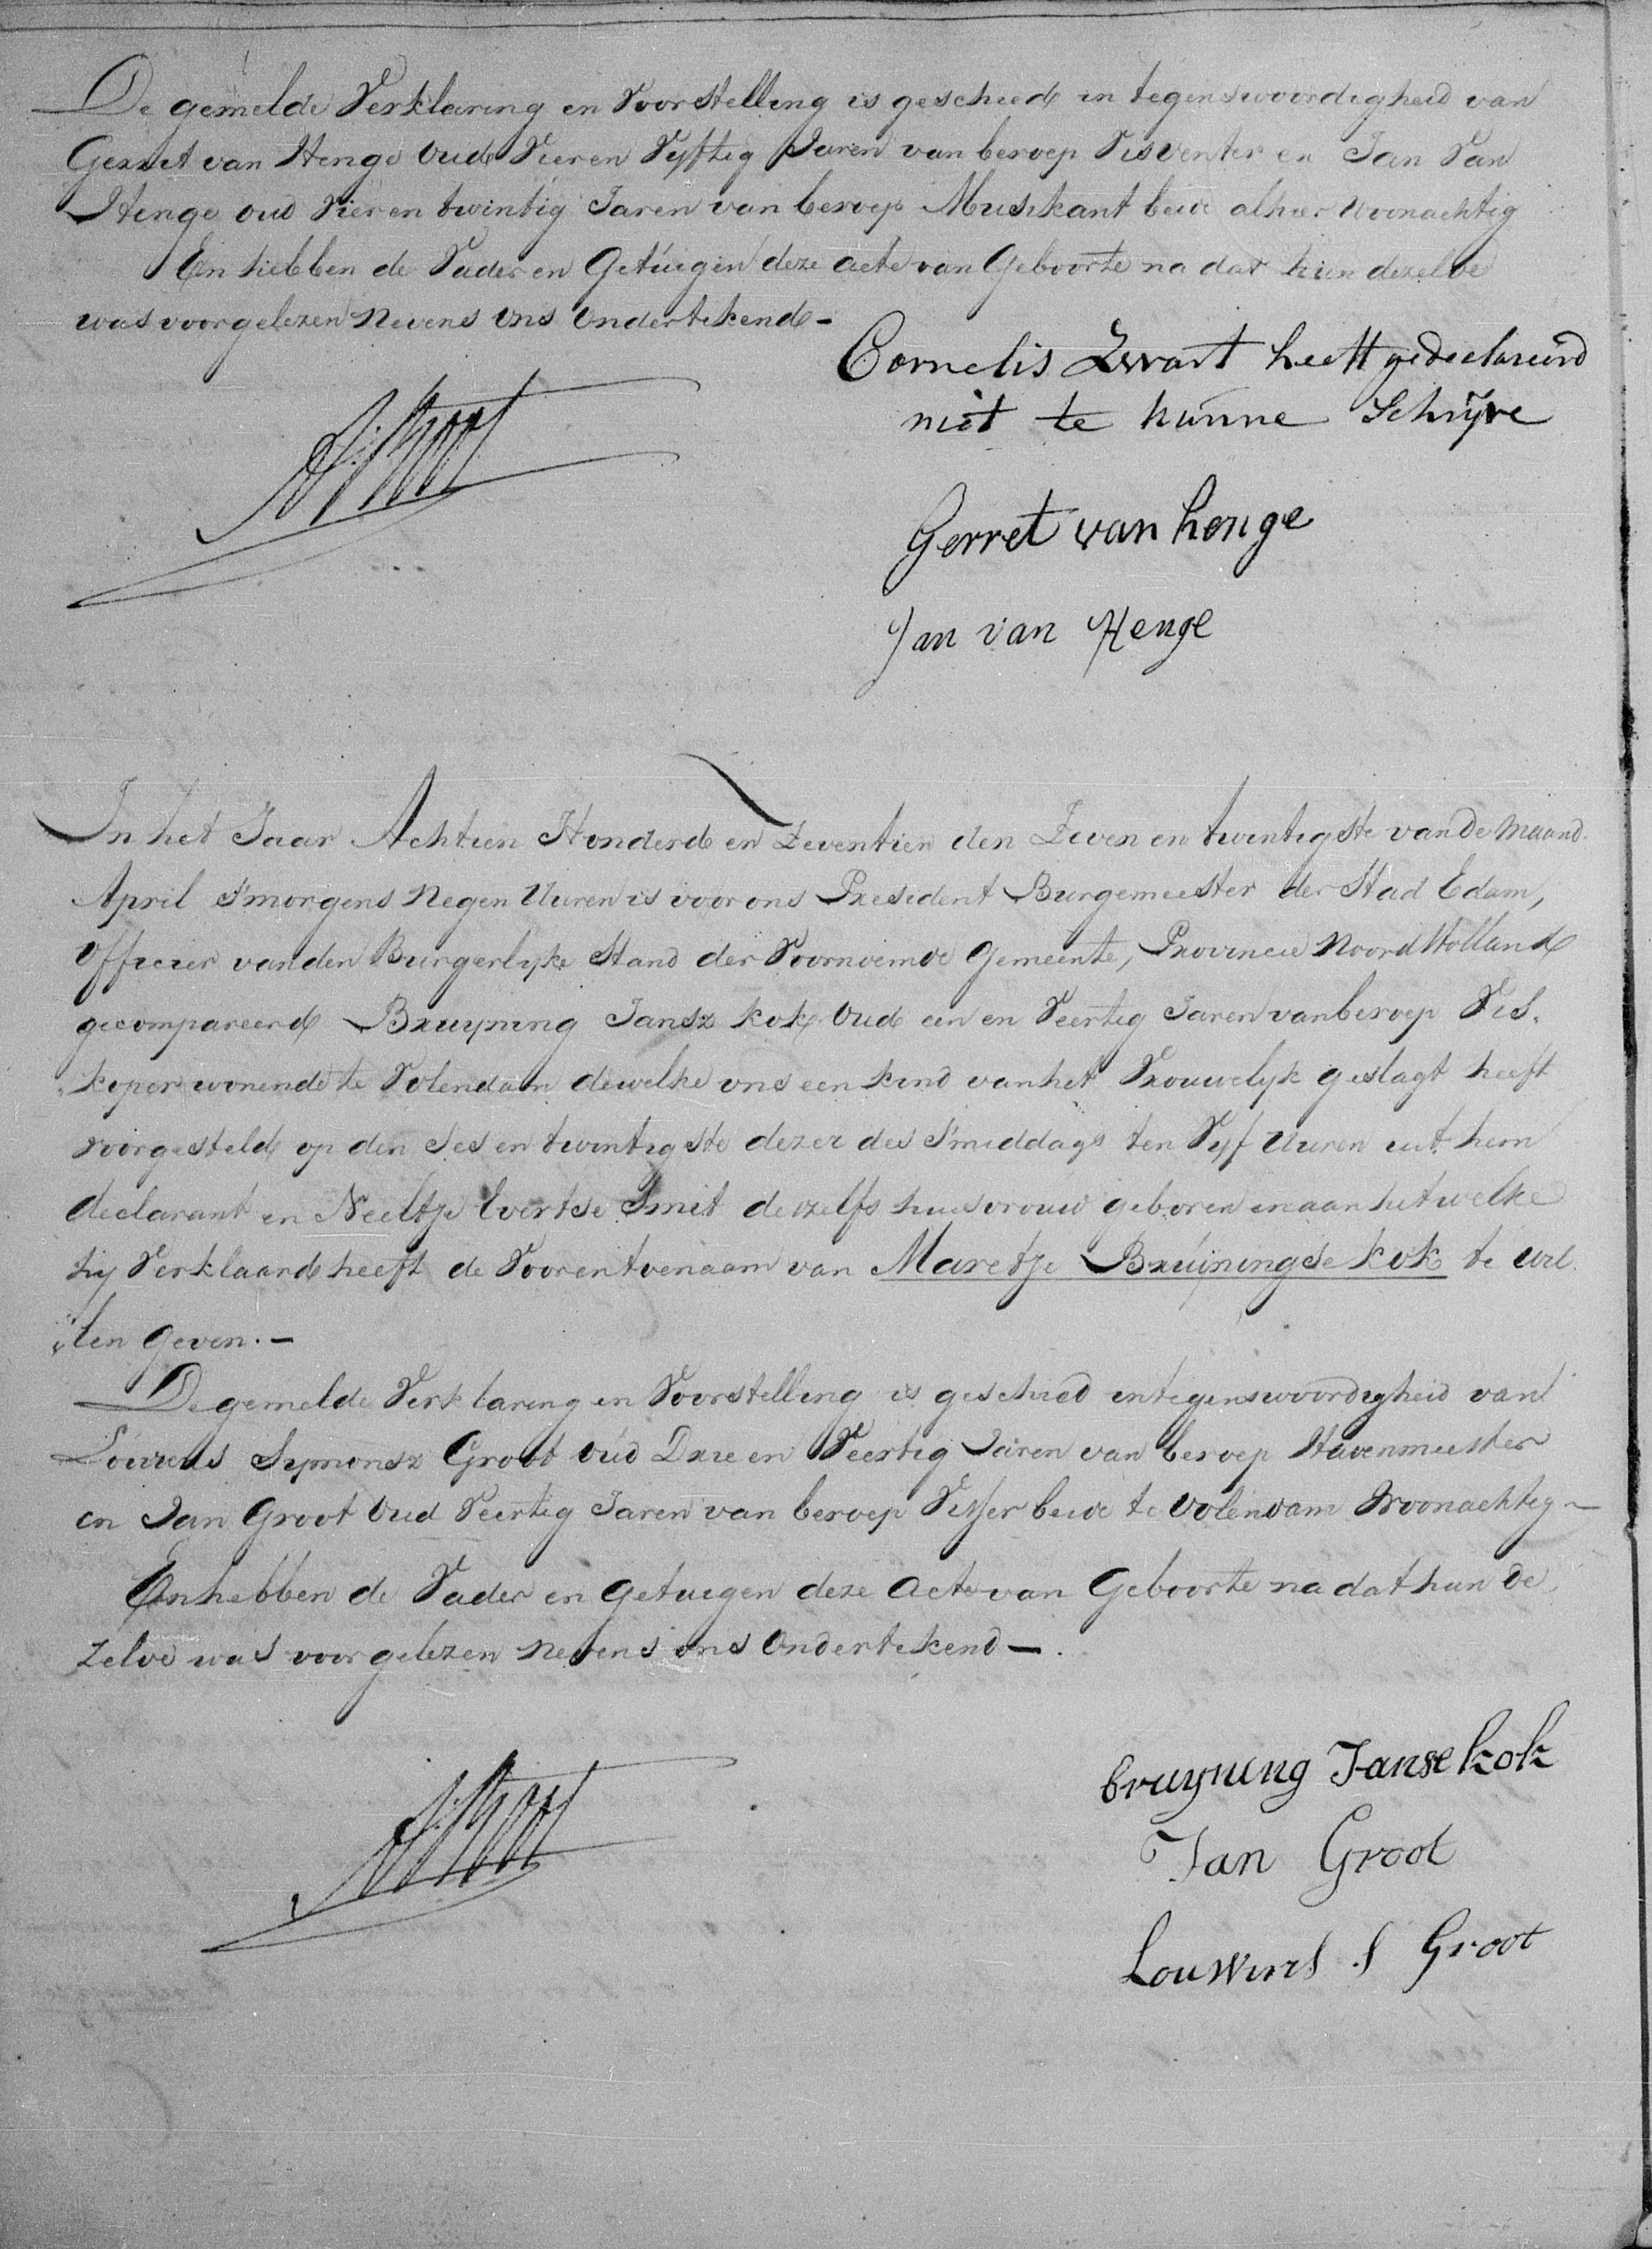 De gemelde Verklaring en Voorstelling is geschied in tegenswoordigheid van
Gerret van Henge Oud Vier en Vyftig Jaren van beroep Visventer en Jan Van
Henge oud Vier en twintig Jaren van beroep Musikant beide alhier woonachtig
En hebben de Vader en Getuigen deze acte van Geboorte na dat hun dezelve
was voorgelezen Nevens Ons Ondertekend -
Cornelis Zwart heeft gedeclareerd
niet te kunne Schryve
Gerret van henge
Jan van Henge
In het Jaar Achtien Honderd en Zeventien den Zeven en twintigste van de Maand
April S'morgens Negen Uuren is voor ons President Burgemeester der Stad Edam,
Officier van den Burgerlyke Stand der Voornoemde Gemeente, Provincie Noord Holland
gecompareerd Bruyning Jansz kok Oud een en Veertig Jaren van beroep Vis„
„koper wonende te Volendam dewelke ons een kind van het Vrouwelyk geslagt heeft
voorgesteld op den Ses en twintigste dezer des S'middags ten Vyf Uuren uit hem
declarant en Neeltje Evertse Smit deszelfs huisvrouw geboren en aan het welke
hy Verklaard heeft de Voor en toenaam van Maretje Bruijningse kok te wil„
„len geven. -
De gemelde Verklaring en Voorstelling is geschied in tegenswoordigheid van
Louwens Symonsz Groot Oud Drie en Veertig Jaren van beroep Havenmeester
en Jan Groot Oud Veertig Jaren van beroep Visser beide te Volendam Woonachtig -
En hebben de Vader en Getuigen deze Acte van Geboorte na dat hun de„
zelve was voorgelezen Nevens ons Ondertekend -.
bruyning Janse kok
Jan Groot
Louwens S Groot